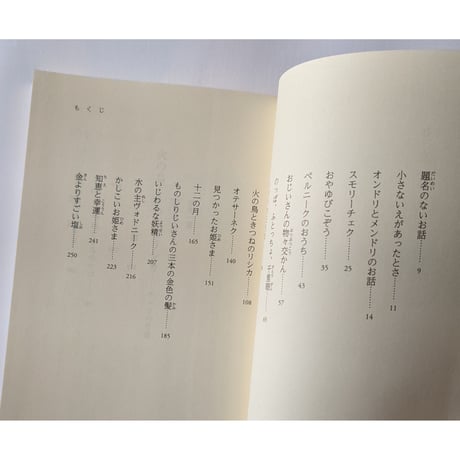 題名のないお話……9
小さないえがあったとさ……11
オンドリとメンドリのお話……14
スモリーチェク……25
おやゆびこぞう……35
ペルニークのおうち……43
おじいさんの物々交かん……57
のっぽ、ふとっちょ、千里眼
火の鳥ときつねのリシカ……108
オテサーネク……140
見つかったお姫さま……151
十二の月……165
ものしりじいさんの三本の金色の髪……185
いじわるな妖精……207
水の主ヴォドニーク……216
かしこいお姫さま……223
知恵と幸運……241
金よりすごい塩……250
もくじ